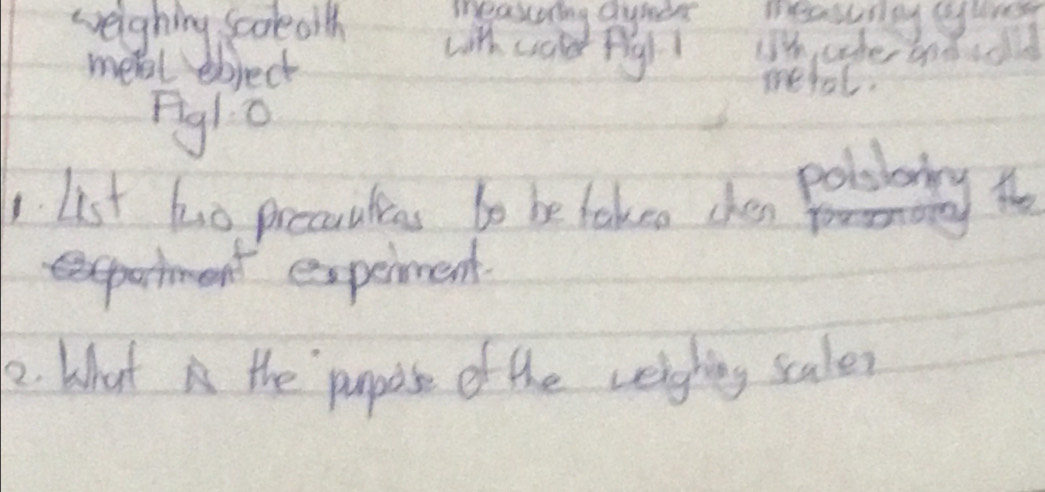 weighing scale with measuring cylinder measuring cylinder
metal object with water Fig 1.1 with water and solid
Fig 1.0 metal.
1. List two precautions to be taken when the
experiment.
2. What is the purpose of the weighing scales